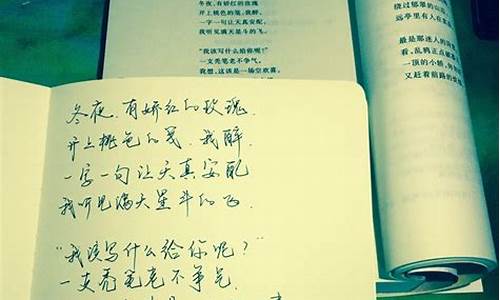 冬夜,有娇红的玫瑰
开上桃色的笺,我醉,
一字一句让天真安配,
我听见满天星斗的飞。
“我该写什么给你呢?”
一支秃笔老不争气,
我想,这该是一场空欢喜,
绕过郁翠的山
远亭里有人在
最是那迷人的
看,乱鸦正点破
一顶的小轿,
又赶着前路的
冬夜,有娇红的玫瑰.
开上桃色的笺.我醉.
一字一句让天真安配
我听见满天星斗的飞.
“我该写什么给你呢?”
一支秃笔老不争气.